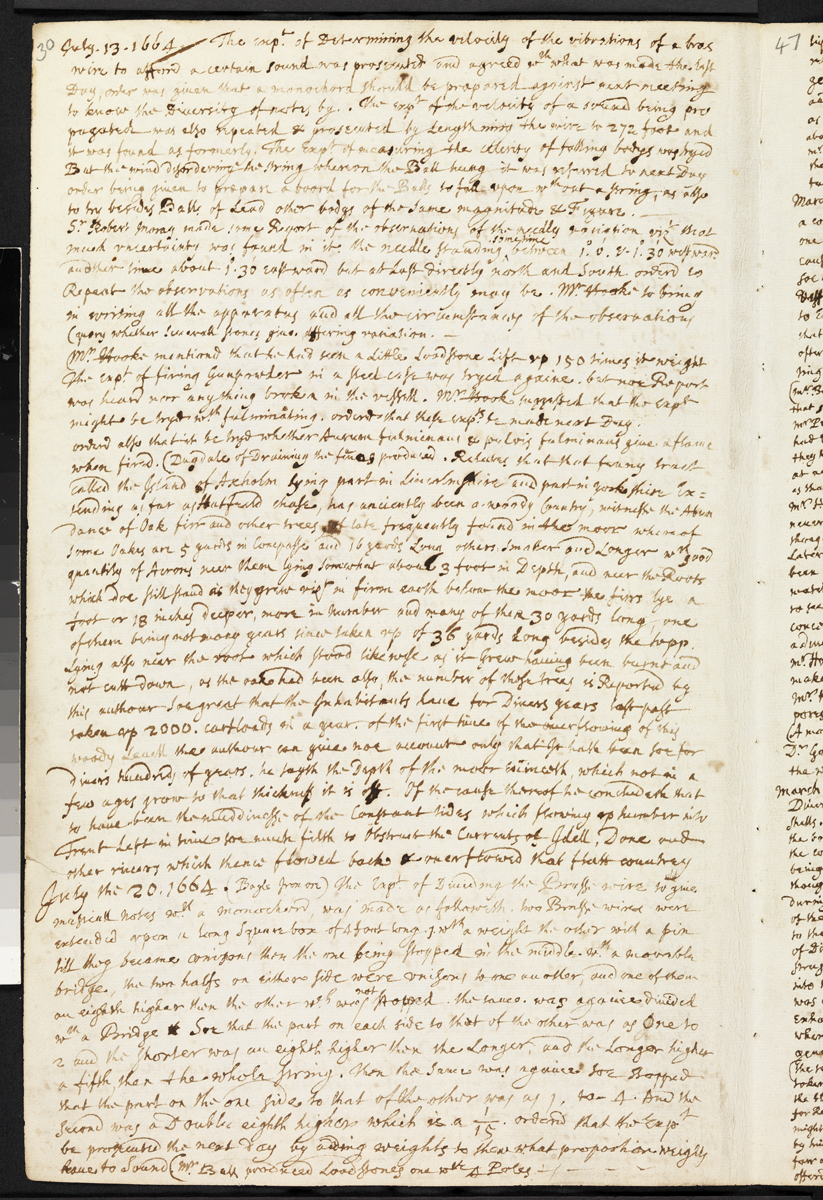 30 July. 13. 1664. The expt. of Determining the velocity of the vibrations of a bras
wire to afford a certain sound was prosecuted and agreed wth what was made the last
Day, order was given that a monochord should be prepared against next meeting
to know the Diversity of notes by. . The expt of the velocity of a sound being pro
pagated was also repeated & prosecuted by Lengthning the wire to 272 foot and
it was found as formerly. The Expt of measuring the celerity of falling bodys was tryed
But the wind disordering the string wheron the Ball hung it was referred to next Day
order being given to prepare a board for the Balls to fall upon wthout a string, as also
to try besides Balls of Lead other bodys of the same magnitude & Figure. —
Sr. Robert Moray made some Report of the observations of the needly variation vizt that
much uncertainty was found in it, the needle standing sometime between 1°. 0. & 1°. 30 westward
another time about 1°. 30 eastward but at Last directly north and South. orderd to
Repeat the observations as often as conveniently may be. Mr Hooke to bring
in writing all the apparatus and all the circumstances of the observations
(query whether severall stones give differing variation. —
(Mr. Hooke mentiond that he had seen a Little Loadstone Lift up 150 times its weight
The expt of firing Gunpowder in a steel case was tryed againe. but noe Report
was heard nor any thing broken in the vessell. Mr Hook suggested that the expt
might be tryd wth fulminating. orderd that these expts be made next Day.
orderd also that it be tryd whether Aurum fulminans & pulvis fulminans give a flame
when fired. (Dugdale of Draining the fens produced. Relates that that fenny tract
called the Island of Axholm lying part in Lincolnshire and part in yorkshire Ex=
tending as far as Hatfeild chase, has anciently been a woody Country, witnesse the Abun
dance of Oak firr and other trees of late frequently found in the moor wherof
some Oakes are 5 yards in Compasse and 16 yards Long others smaler and Longer wth good
quantity of Acrons neer them lying somwhat above 3 foot in Depth, and neer the Roots
which doe still stand as they grew vizt in firm earth below the moor the firrs lye a
foot or 18 inches deeper, more in number and many of them 30 yards long, one
of them being not many years since taken up of 36 yards Long besides the topp
Lying also near the root which stood likewise as it grew having been burnt and
not cutt down, as the oake had been also, the number of those trees is Reported by
this authour soe great that the Inhabitants have for Divers years last past
taken up 2000. cartloads in a year. of the first time of the overflowing of this
woody Levell the authour can give noe account only that It hath been soe for
Divers hundreds of years. he sayth the Depth of the moor evinceth, which not in a
few ages grow to that thicknesse it is off. Of the cause thereof he concludeth that
to have been the muddinesse of the Constant tides which flowing up humber into
Trent Left in time soe much filth to obstruct the Currents of Idell, Done and
other rivers which thence flowed back & overflowed that flatt countrey
July the 20. 1664. The Expt. of Dividing the Brasse wire to give
musicall notes wth a monochord, was made as followeth. two Brasse wires were
extended upon a Long Square box of 4 foot long. J wth a weight the other with a pin
till they became unisons then the one being stopped in the middle wth a movable
bridge, the two halfs on either side were unisons to one another, and one of them
an eighth higher then the other wch was not stopped. the same was againe divided
wth a Bridge & Soe that the part on each side to that of the other was as One to
2 and the shorter was an eighth higher then the Longer, and the Longer higher
a fifth then the whole string. Then the same was againe soe stopped
that the part on the one side to that of the other was as 1, to 4. And the
second was a Double eighth higher which is a 1/15. orderd that the Expt
be prosecuted the next day by adding weights to shew what proportion weights
have to Sound (Mr. Ball produced Loadstones one wth 4 Poles —
47
March